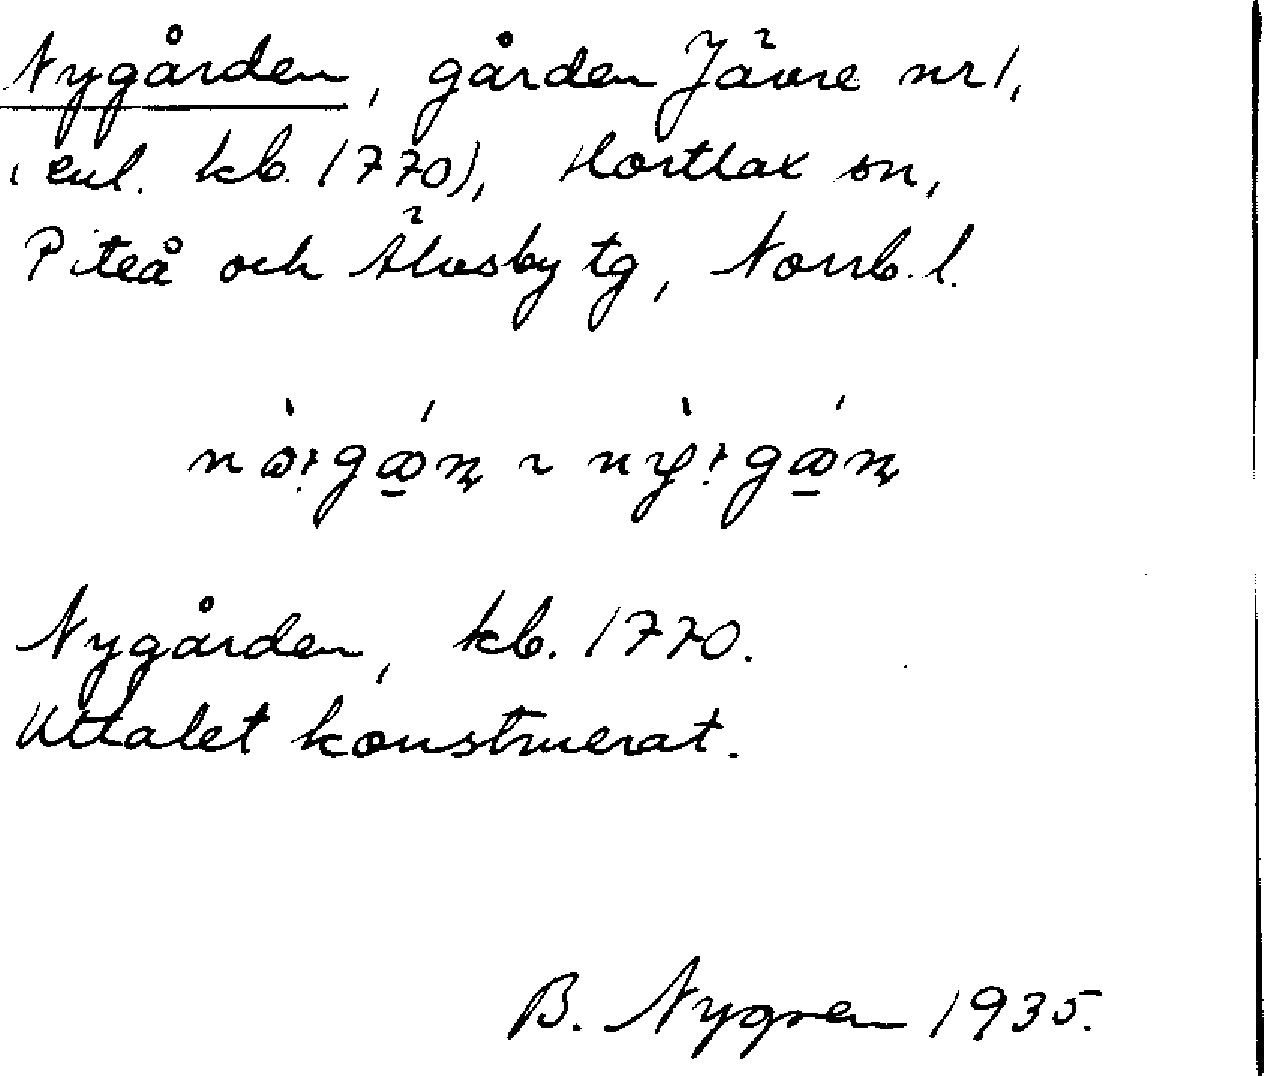 Nygården, gården Jävre nr 1,
(enl. kb. 1770), Hortlax sn,
Piteå och Älvsby tg, Norrb. l.
Nygården, kb. 1770.
Uttalet konstruerat.
B. Nygren 1935.